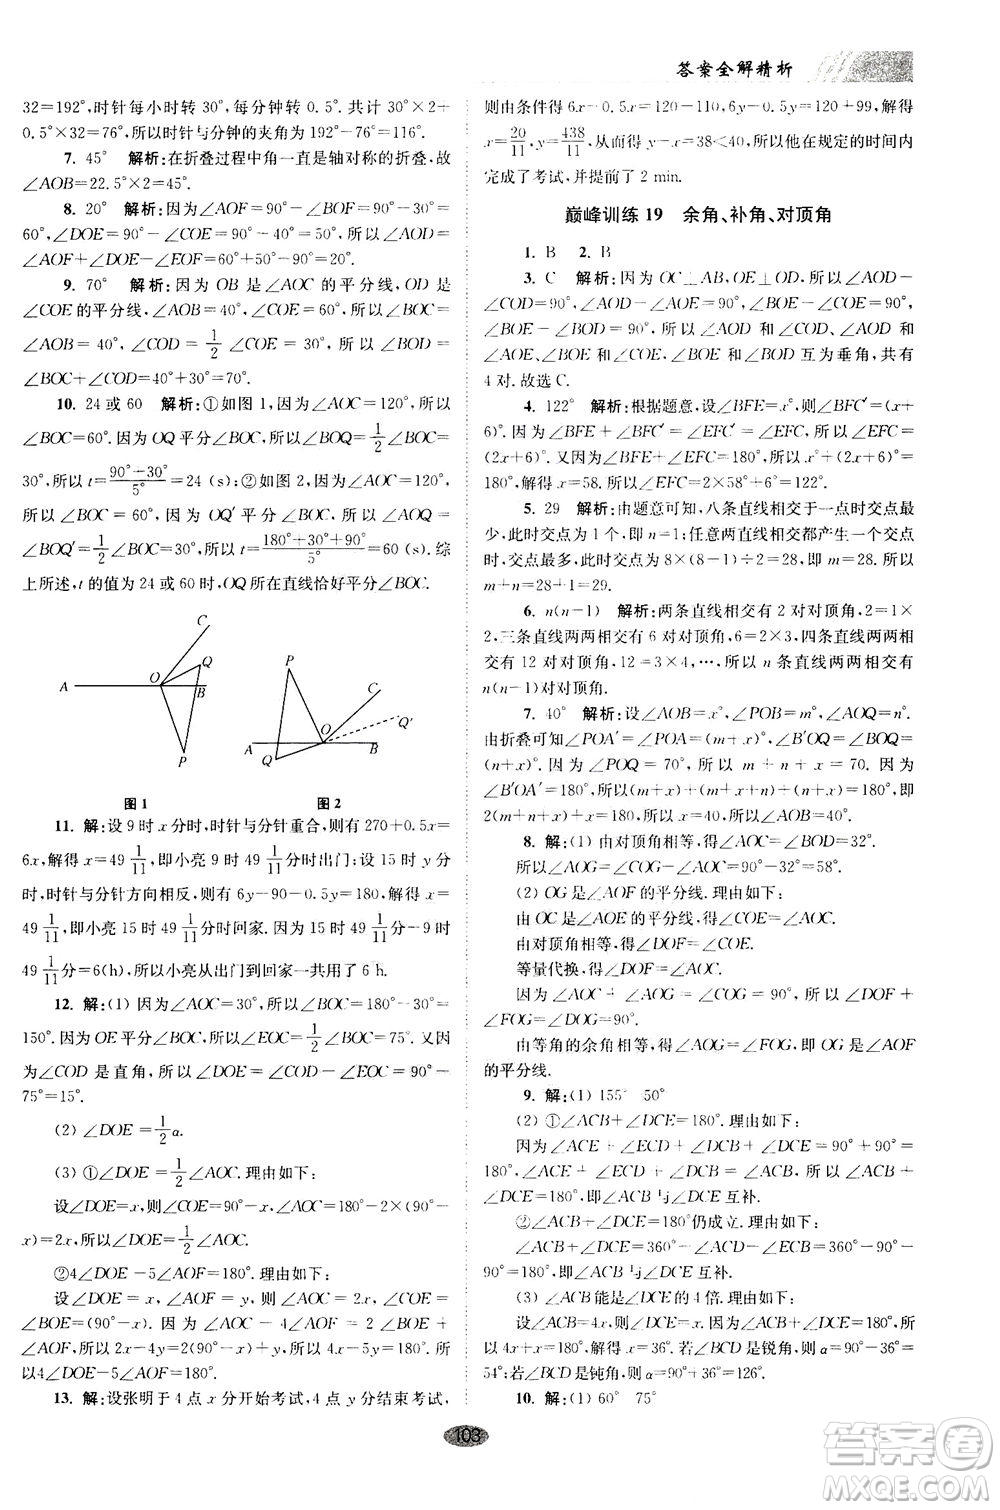 答案全解精析
32=192°,时针每小时转 30°,每分钟转 0.5°. 共计 30°×2+
0.5°×32=76°,所以时针与分钟的夹角为 192°-76°=116°.
7. 45° 解析:在折叠过程中角一直是轴对称的折叠,故
∠AOB=22.5°×2=45°.
8. 20° 解析:因为∠AOF=90°-∠BOF=90°-30°=
60°,∠DOE=90°-30°=60°,所以∠AOD=180°-
∠AOF+∠DOE-∠EOF=180°-60°+60°-160°=20°.
9. 70° 解析:因为 OB 是∠AOC 的平分线,OD 是
∠COE 的平分线,∠AOB=40°,∠COE=60°,所以∠BOC=
∠AOB=40°,∠COD=1/2∠COE=30°,所以∠BOD=
∠BOC+∠COD=40°+30°=70°.
10. 24 或 60 解析:①如图 1,因为∠AOC=120°,所以
∠BOC=60°. 因为 OQ 平分∠BOC,所以∠BOQ=1/2∠BOC=
30°,所以 t=(90°-30°)/5°=24 (s);②如图 2,因为∠AOC=120°,
所以∠BOC=60°. 因为 OQ′平分∠BOC,所以
∠BOQ′=1/2∠BOC=30°,所以 t=(180°+30°+90°)/5°=60 (s). 综
上所述,t 的值为 24 或 60 时,OQ 所在直线恰好平分∠BOC.
C
Q
A O B
P
P
C
O Q′
A B
Q
图 1 图 2
11. 解:设 9 时 x 分时,时针与分针重合,则有 270+0.5x=
6x,解得 x=49 1/11,即小亮 9 时 49 1/11 分时出门;设 15 时 y 分
时,时针与分针方向相反,则有 6y-90-0.5y=180,解得 y=
49 1/11,即小亮 15 时 49 1/11 分时回家. 因为 15 时 49 1/11 分-9 时
49 1/11 分=6(h),所以小亮从出门到回家一共用了 6 h.
12. 解:(1) 因为∠AOC=30°,所以∠BOC=180°-30°=
150°. 因为 OE 平分∠BOC,所以∠EOC=1/2∠BOC=75°. 又因
为∠COD 是直角,所以∠DOE=∠COD-∠EOC=90°-
75°=15°.
(2) ∠DOE=1/2 a.
(3) ①∠DOE=1/2∠AOC. 理由如下:
设∠DOE=x,则∠COE=90°-x,所以∠AOC=180°-2×(90°-
x)=2x,所以∠DOE=1/2∠AOC.
②4∠DOE-5∠AOF=180°. 理由如下:
设∠DOE=x,∠AOF=y,所以∠AOC-4∠AOF=
∠BOE=(90°-x)+y,所以 2x-4y=2(90°-x)+y,所以 4x-5y=180°,
所以4∠DOE-5∠AOF=180°.
13. 解:设张明于 4 点 x 分开始考试,y 分结束考试,
则由条件得 6x-0.5x=120-110,6y-0.5y=120+99,解得
x=20/11,y=438/11,从而 y-x=38<40,所以他在规定的时间内
完成了考试,并提前了 2 min.
巅峰训练 19 余角、补角、对顶角
1. B 2. B
3. C 解析:因为 OC⊥AB,OE⊥OD,所以∠AOD-
∠COD=90°,所以∠AOE-∠BOE=∠COE=90°,
∠BOE-∠BOD=90°,所以∠AOD 与∠COD、∠COE 与
∠AOE、∠BOE 与∠BOD 互为垂角,共有
4 对. 故选 C.
4. 122° 解析:根据题意,设∠BFE=x°,则∠BFC′=(x+
6)°. 因为∠BFE+∠BFC′=∠EFC′,所以∠EFC=
(2x+6)°. 因为∠BFE+∠EFC=180°,所以 x°+(2x+6)°=
180°,解得 x=58,所以∠EFC=2×58°+6°=122°.
5. 29 解析:由题意可知,八条直线相交于一点时交点最少,
此时交点为 1 个,即 n=1;任意两直线相交都产生一个交点
时,交点最多,此时交点为 8×(8-1)÷2=28,所以 m=28,所以
m+n=28+1=29.
6. n(n-1) 解析:两条直线相交有 2 对对顶角,2=1×
2,三条直线两两相交有 6 对对顶角,6=2×3,四条直线两两相
交有 12 对对顶角,12=3×4,…,所以 n 条直线两两相交有
n(n-1)对对顶角.
7. 40° 解析:设∠AOB=x°,∠POB=m°,∠AOQ=n°.
由折叠可知∠POA′=∠POA=(m+x)°,∠B′OQ=∠BOQ=
(n+x)°. 因为∠POQ=70°,所以 m+n+x=70. 因为
∠B′OA′=180°,所以(m+x)+(m+x+n)+(n+x)=180,即
2(m+n+x)+x=180,所以 x=40,所以∠AOB=40°.
8. 解:(1) 由对顶角相等,得∠AOC=∠BOD=32°.
所以∠AOG=∠COG-∠AOC=90°-32°=58°.
(2) OG 是∠AOF 的平分线. 理由如下:
由 OC 是∠AOE 的平分线,得∠COE=∠AOC.
由对顶角相等,得∠DOF=∠COE.
等量代换,得∠AOC=∠DOF.
因为∠COG=90°,所以∠AOC+∠AOG=∠COG=90°,所以∠DOF+
∠FOG=∠DOG=90°.
由等角的余角相等,得∠AOG=∠FOG,∠OG 是∠AOF
的平分线.
9. 解:(1) 155° 50°
(2) ①∠ACB+∠DCE=180°. 理由如下:
因为∠ACE+∠ECD+∠DCB+∠ECD=90°+90°=
180°,∠ACE+∠ECD+∠DCB=∠ACB,所以∠ACB+
∠DCE=180°,即∠ACB 与∠DCE 互补.
②∠ACB+∠DCE=180°仍成立. 理由如下:
∠ACB+∠DCE=360°-∠DCA-∠ECB=360°-90°-
90°=180°,即∠ACB 与∠DCE 互补.
(3) ∠ACB能是∠DCE 的 4 倍. 理由如下:
设∠ACB=4x,则∠DCE=x. 因为∠ACB+∠DCE=180°,所以
4x+x=180°,解得 x=36°. 若∠BCD 是锐角,则 α=90°-36°=
54°;若∠BCD 是钝角,则 α=90°+36°=126°.
10. 解:(1) 60° 75°
103
答案圈
MXQE.COM